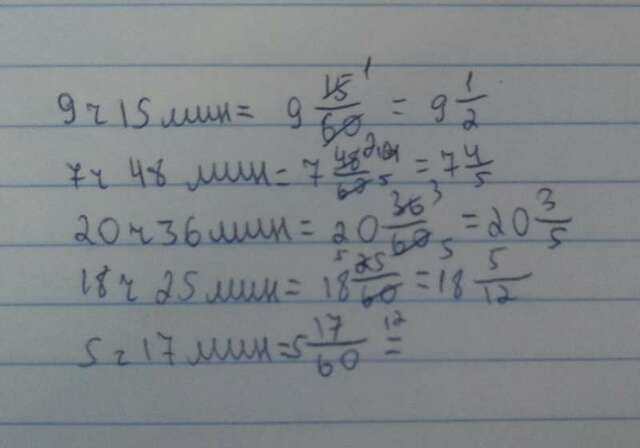 9 ч 15 мин = 9 15/60 1 = 9 1/2
7 ч 48 мин = 7 48/60 5 = 7 4/5
20 ч 36 мин = 20 36/60 3 5 = 20 3/5
18 ч 25 мин = 18 25/60 5 12 = 18 5/12
5 ч 17 мин = 5 17/60 =